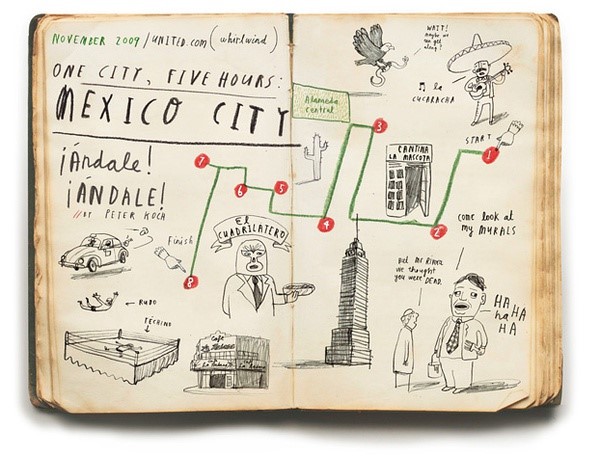 NOVEMBER 2009 / UNITED.COM (whirlwind)
ONE CITY, FIVE HOURS:
MEXICO CITY
¡Ándale!
¡ÁNDALE!
// BY PETER KOCH
Finish
7
6
5
8
EL
CUADRILATERO
← RUDO
TÉCNICO
Café
Alameda
Central
3
4
WAIT!
maybe we
can get
along?
♫ la
CUCARACHA
START
1
2
CANTINA
LA MASCOTA
come look at
my MURALS
But Mr RIVERA
we thought
you were DEAD.
HA
HA
ha
HA